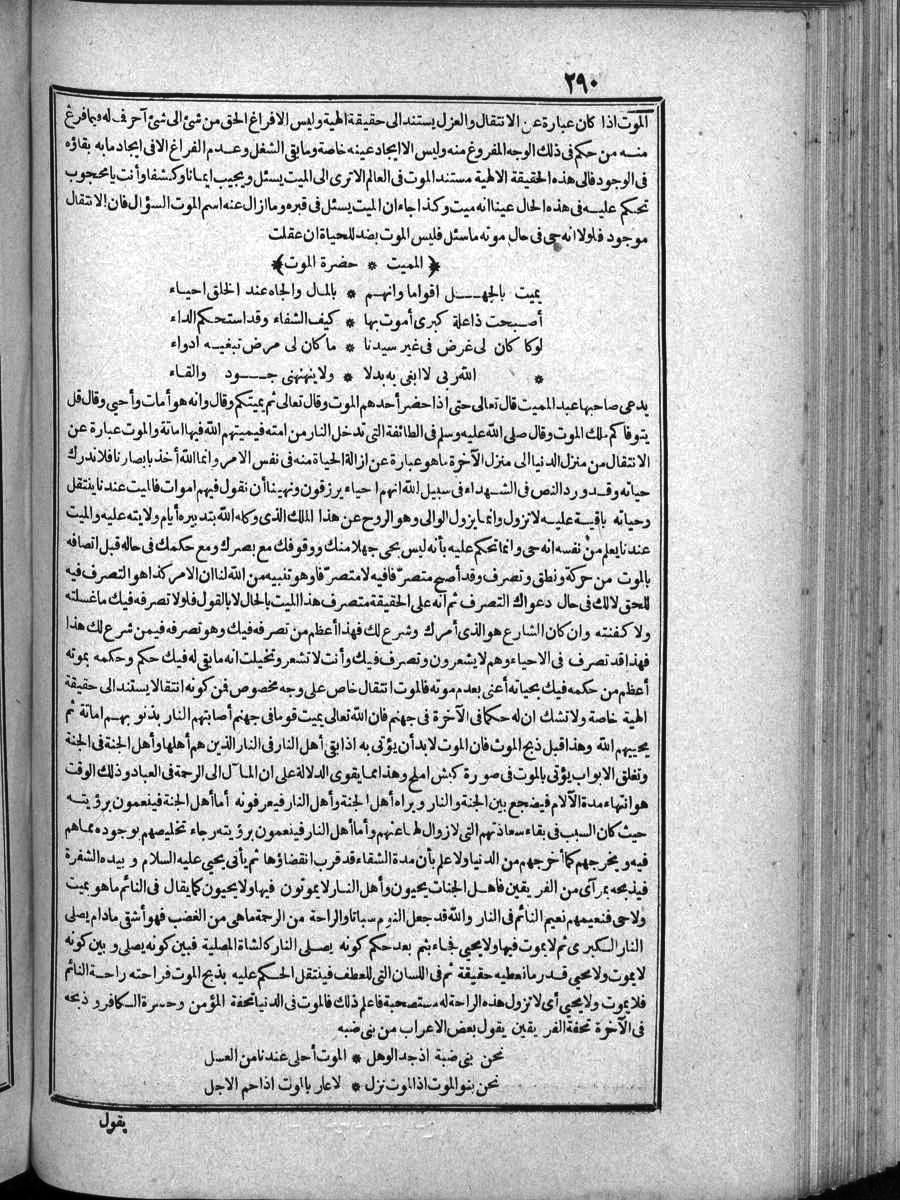 ٢٩٠
الموت اذا كان عبارة عن الانتقال والعزل يستند الى حقيقة الهية وليس الا فراغ الحق من شئ الى شئ آخر ف له فيما فرغ
منه من حكم فى ذلك الوجه المفروغ منه وليس الا ايجاد عينه خاصة وما بقى الشغل وعدم الفراغ الا فى ايجاد ما به بقاؤه
فى الوجود فالى هذه الحقيقة الالهية مستند الموت فى العالم الا ترى الى الميت يسئل ويجيب ايمانا وكشفا وأنت يا محجوب
تحكم عليه فى هذه الحال عينا انه ميت وكذا جاء ان الميت يسئل فى قبره وما ازال عنه اسم الموت السؤال فان الانتقال
موجود فلولا انه حى فى حال موته ما سئل فليس الموت بضد للحياة ان عقلت
﴿المميت * حضرة الموت﴾
يميت بالجهل اقواما وانهم * بالمال والجاه عند الخلق احياء
أصبحت ذا علة كبرى أموت بها * كيف الشفاء وقد استحكم الداء
لو كان لى غرض فى غير سيدنا * ما كان لى مرض تبغيه ادواء
* الله ربى لا ابغى به بدلا * ولا ينهنهنى جود والقاء
يدعى صاحبها عبد المميت قال تعالى حتى اذا حضر أحدهم الموت وقال تعالى ثم يميتكم وقال وانه هو أمات وأحيى وقال قل
يتوفاكم ملك الموت وقال صلى الله عليه وسلم فى الطائفة التى تدخل النار من امته فيميتهم الله فيها اماتة والموت عبارة عن
الانتقال من منزل الدنيا الى منزل الآخرة ما هو عبارة عن ازالة الحياة منه فى نفس الامر وانما الله أخذ بابصارنا فلا ندرك
حياته وقد ورد النص فى الشهداء فى سبيل الله انهم احياء يرزقون ونهينا أن نقول فيهم اموات فالميت عندنا ينتقل
وحياته باقية عليه لا تزول وانما يزول الوالى وهو الروح عن هذا الملك الذى وكله الله بتدبيره أيام ولايته عليه والميت
عندنا يعلم من نفسه انه حى وانما تحكم عليه بأنه ليس بحى جهلا منك ووقوفك مع بصرك ومع حكمك فى حاله قبل اتصافه
بالموت من حركة ونطق وتصرف وقد أصبح متصرّفا فيه لا متصرّفا وهو تنبيه من الله لنا ان الامر كذا هو التصرف فيه
للحق لا لك فى حال دعواك التصرف ثم انه على الحقيقة متصرف هذا الميت بالحال لا بالقول فلولا تصرفه فيك ما غسلته
ولا كفنته وان كان الشارع هو الذى أمرك وشرع لك فهذا أعظم من تصرفه فيك وهو تصرفه فيمن شرع لك هذا
فهذا قد تصرف فى الاحياء وهم لا يشعرون وتصرف فيك وأنت لا تشعر وتخيلت انه ما بقى له فيك حكم وحكمه بموته
أعظم من حكمه فيك بحياته أعنى بعدم موته فالموت انتقال خاص على وجه مخصوص فمن كونه انتقالا يستند الى حقيقة
الهية خاصة ولا تشك ان له حكما فى الآخرة فى جهنم فان الله تعالى يميت قوما فى جهنم أصابتهم النار بذنوبهم اماتة ثم
يحييهم الله وهذا قبل ذبح الموت فان الموت لا بد أن يؤتى به اذا بقى أهل النار فى النار الذين هم أهلها وأهل الجنة فى الجنة
وتغلق الابواب يؤتى بالموت فى صورة كبش املح وهذا مما يقوى الدلالة على ان المآل الى الرحمة فى العباد وذلك الوقت
هو انتهاء مدة الآلام فيضجع بين الجنة والنار ويراه أهل الجنة وأهل النار فيعرفونه أما أهل الجنة فينعمون برؤيته
حيث كان السبب فى بقاء سعادتهم التى لا زوال لها عنهم وأما أهل النار فينعمون برؤيته رجاء تخليصهم بوجوده مما هم
فيه ويخرجهم كما أخرجهم من الدنيا ولا علم بأن مدة الشقاء قد قرب انقضاؤها ثم يأتى يحيى عليه السلام وبيده الشفرة
فيذبحه بمرآى من الفريقين فاهل الجنات يحيون وأهل النار لا يموتون فيها ولا يحيون كما يقال فى النائم ما هو بميت
ولا حى فنعيمهم نعيم النائم فى النار والله قد جعل النوم سباتا والراحة من الرحمة ما هى من الغضب فهو أشقى ما دام يصلى
النار الكبرى ثم لا يموت فيها ولا يحيى فجاء بثم بعد حكم كونه يصلى النار كالشاة المصلية فبين كونه يصلى وبين كونه
لا يموت ولا يحيى قدر ما تعطيه حقيقة ثم فى اللسان التى للعطف فينتقل الحكم عليه بذبح الموت فراحته راحة النائم
فلا يموت ولا يحيى أى لا تزول هذه الراحة له مستصحبة فاعلم ذلك فالموت فى الدنيا تحفة المؤمن وحسرة الكافر وذبحه
فى الآخرة تحفة الفريقين يقول بعض الاعراب من بنى ضبه
نحن بنى ضبة اذ جد الوهل * الموت أحلى عندنا من العسل
نحن بنو الموت اذا الموت نزل * لا عار بالموت اذا حم الاجل
يقول